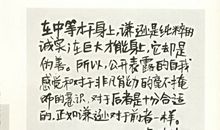 在中等才干身上，谦逊是纯粹的
诚实；在巨大才能身上，它却是
伪善。所以，公开表露的自我
感觉和对于非凡力的毫不掩
饰的意识，对于后者是十分合适
的，正如谦逊对于前者一样。